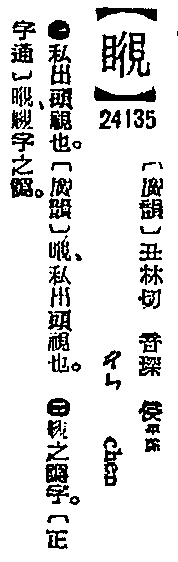 24135
〔廣韻〕丑林切 音琛 侵平聲
ㄔㄣ chen
㊀私出頭視也。〔廣韻〕、私出頭視也。 ㊁之譌字。〔正
字通〕、字之譌。